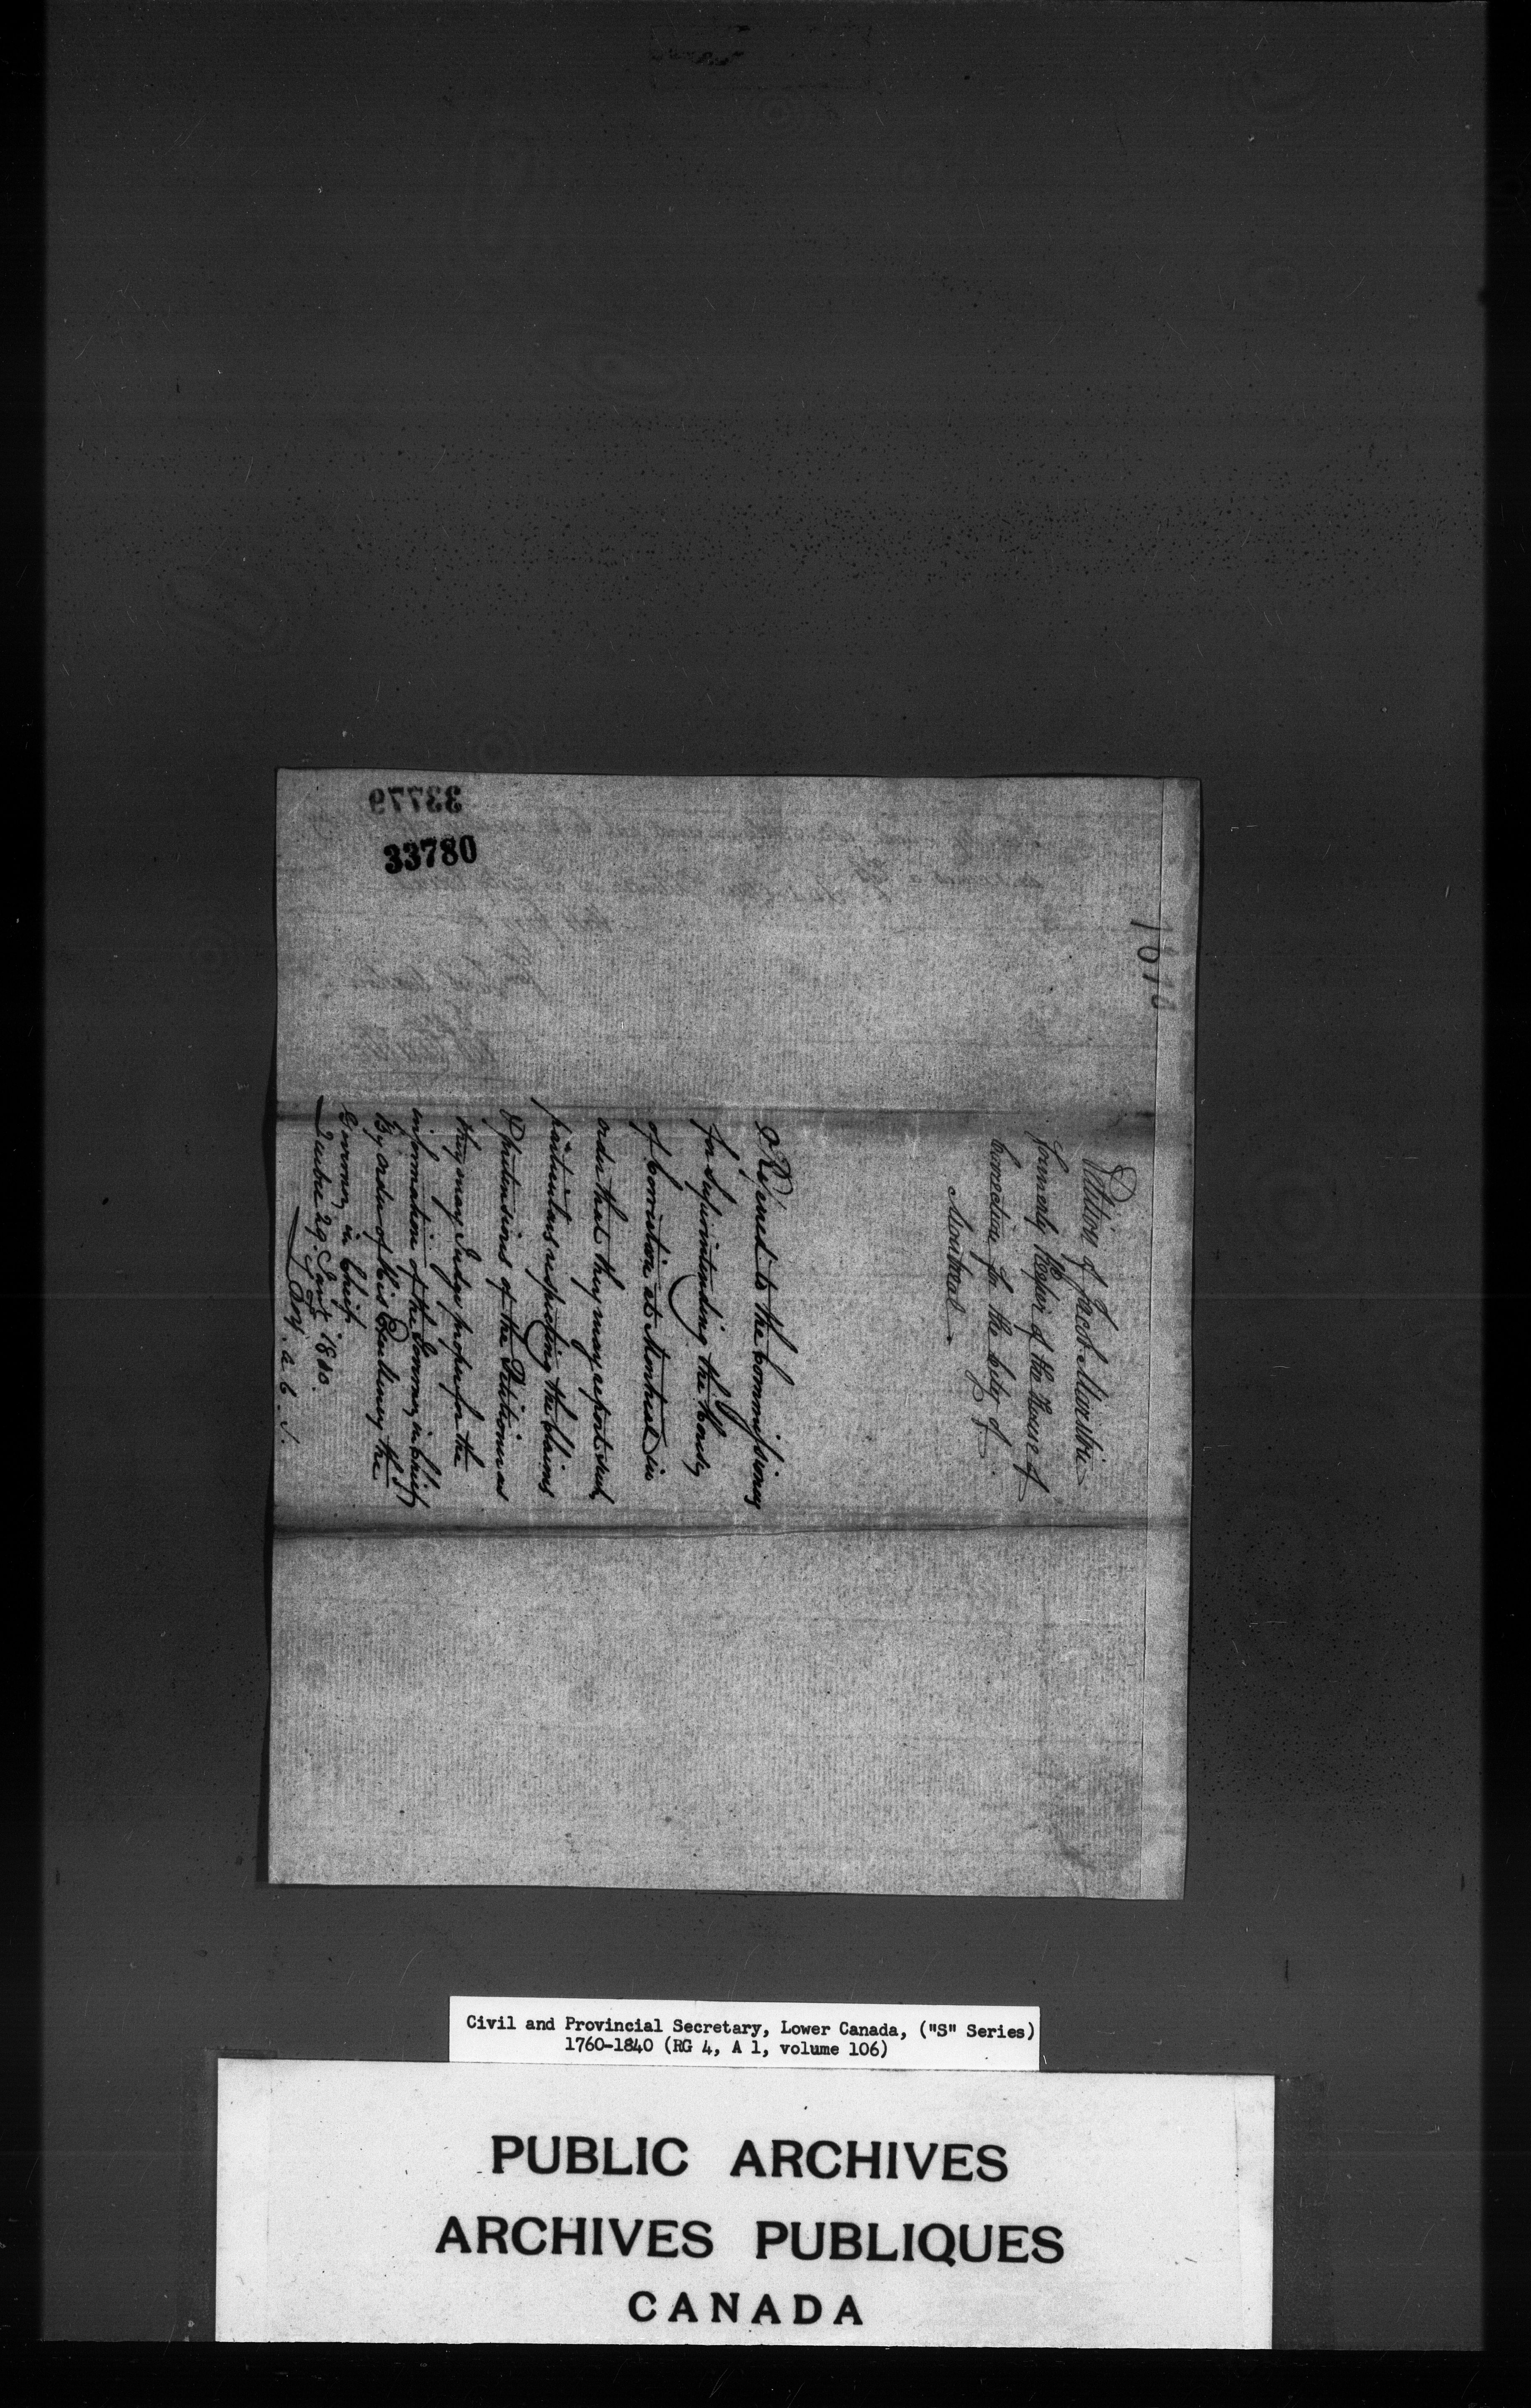 33779
33780
1810
Petition of Jacob Marston
formerly Keeper of the House of
Correction for the City of
Montreal
Referred to the Commissioners
for Superintending the House
of Correction at Montreal in
order that they may report such
particulars respecting the Claims
& pretensions of the Petitioner as
they may Judge proper for the
information of the Governor in Chief
By order of His Excellency the
Governor in Chief
Quebec 29. Jany 1810.
A. C. S.
Civil and Provincial Secretary, Lower Canada, ("S" Series)
1760-1840 (RG 4, A 1, volume 106)
PUBLIC ARCHIVES
ARCHIVES PUBLIQUES
CANADA